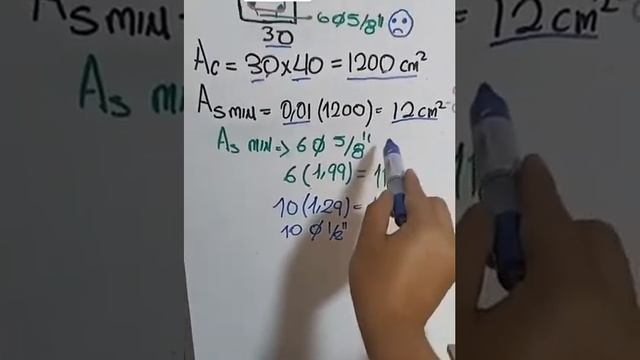 6 Ø 5/8"
30
Ac = 30x40 = 1200 cm²
As MIN = 0,01 (1200) = 12 cm²
As MIN => 6 Ø 5/8"
6 (1,99) = 11
10 (1,29) =
10 Ø 1/2"